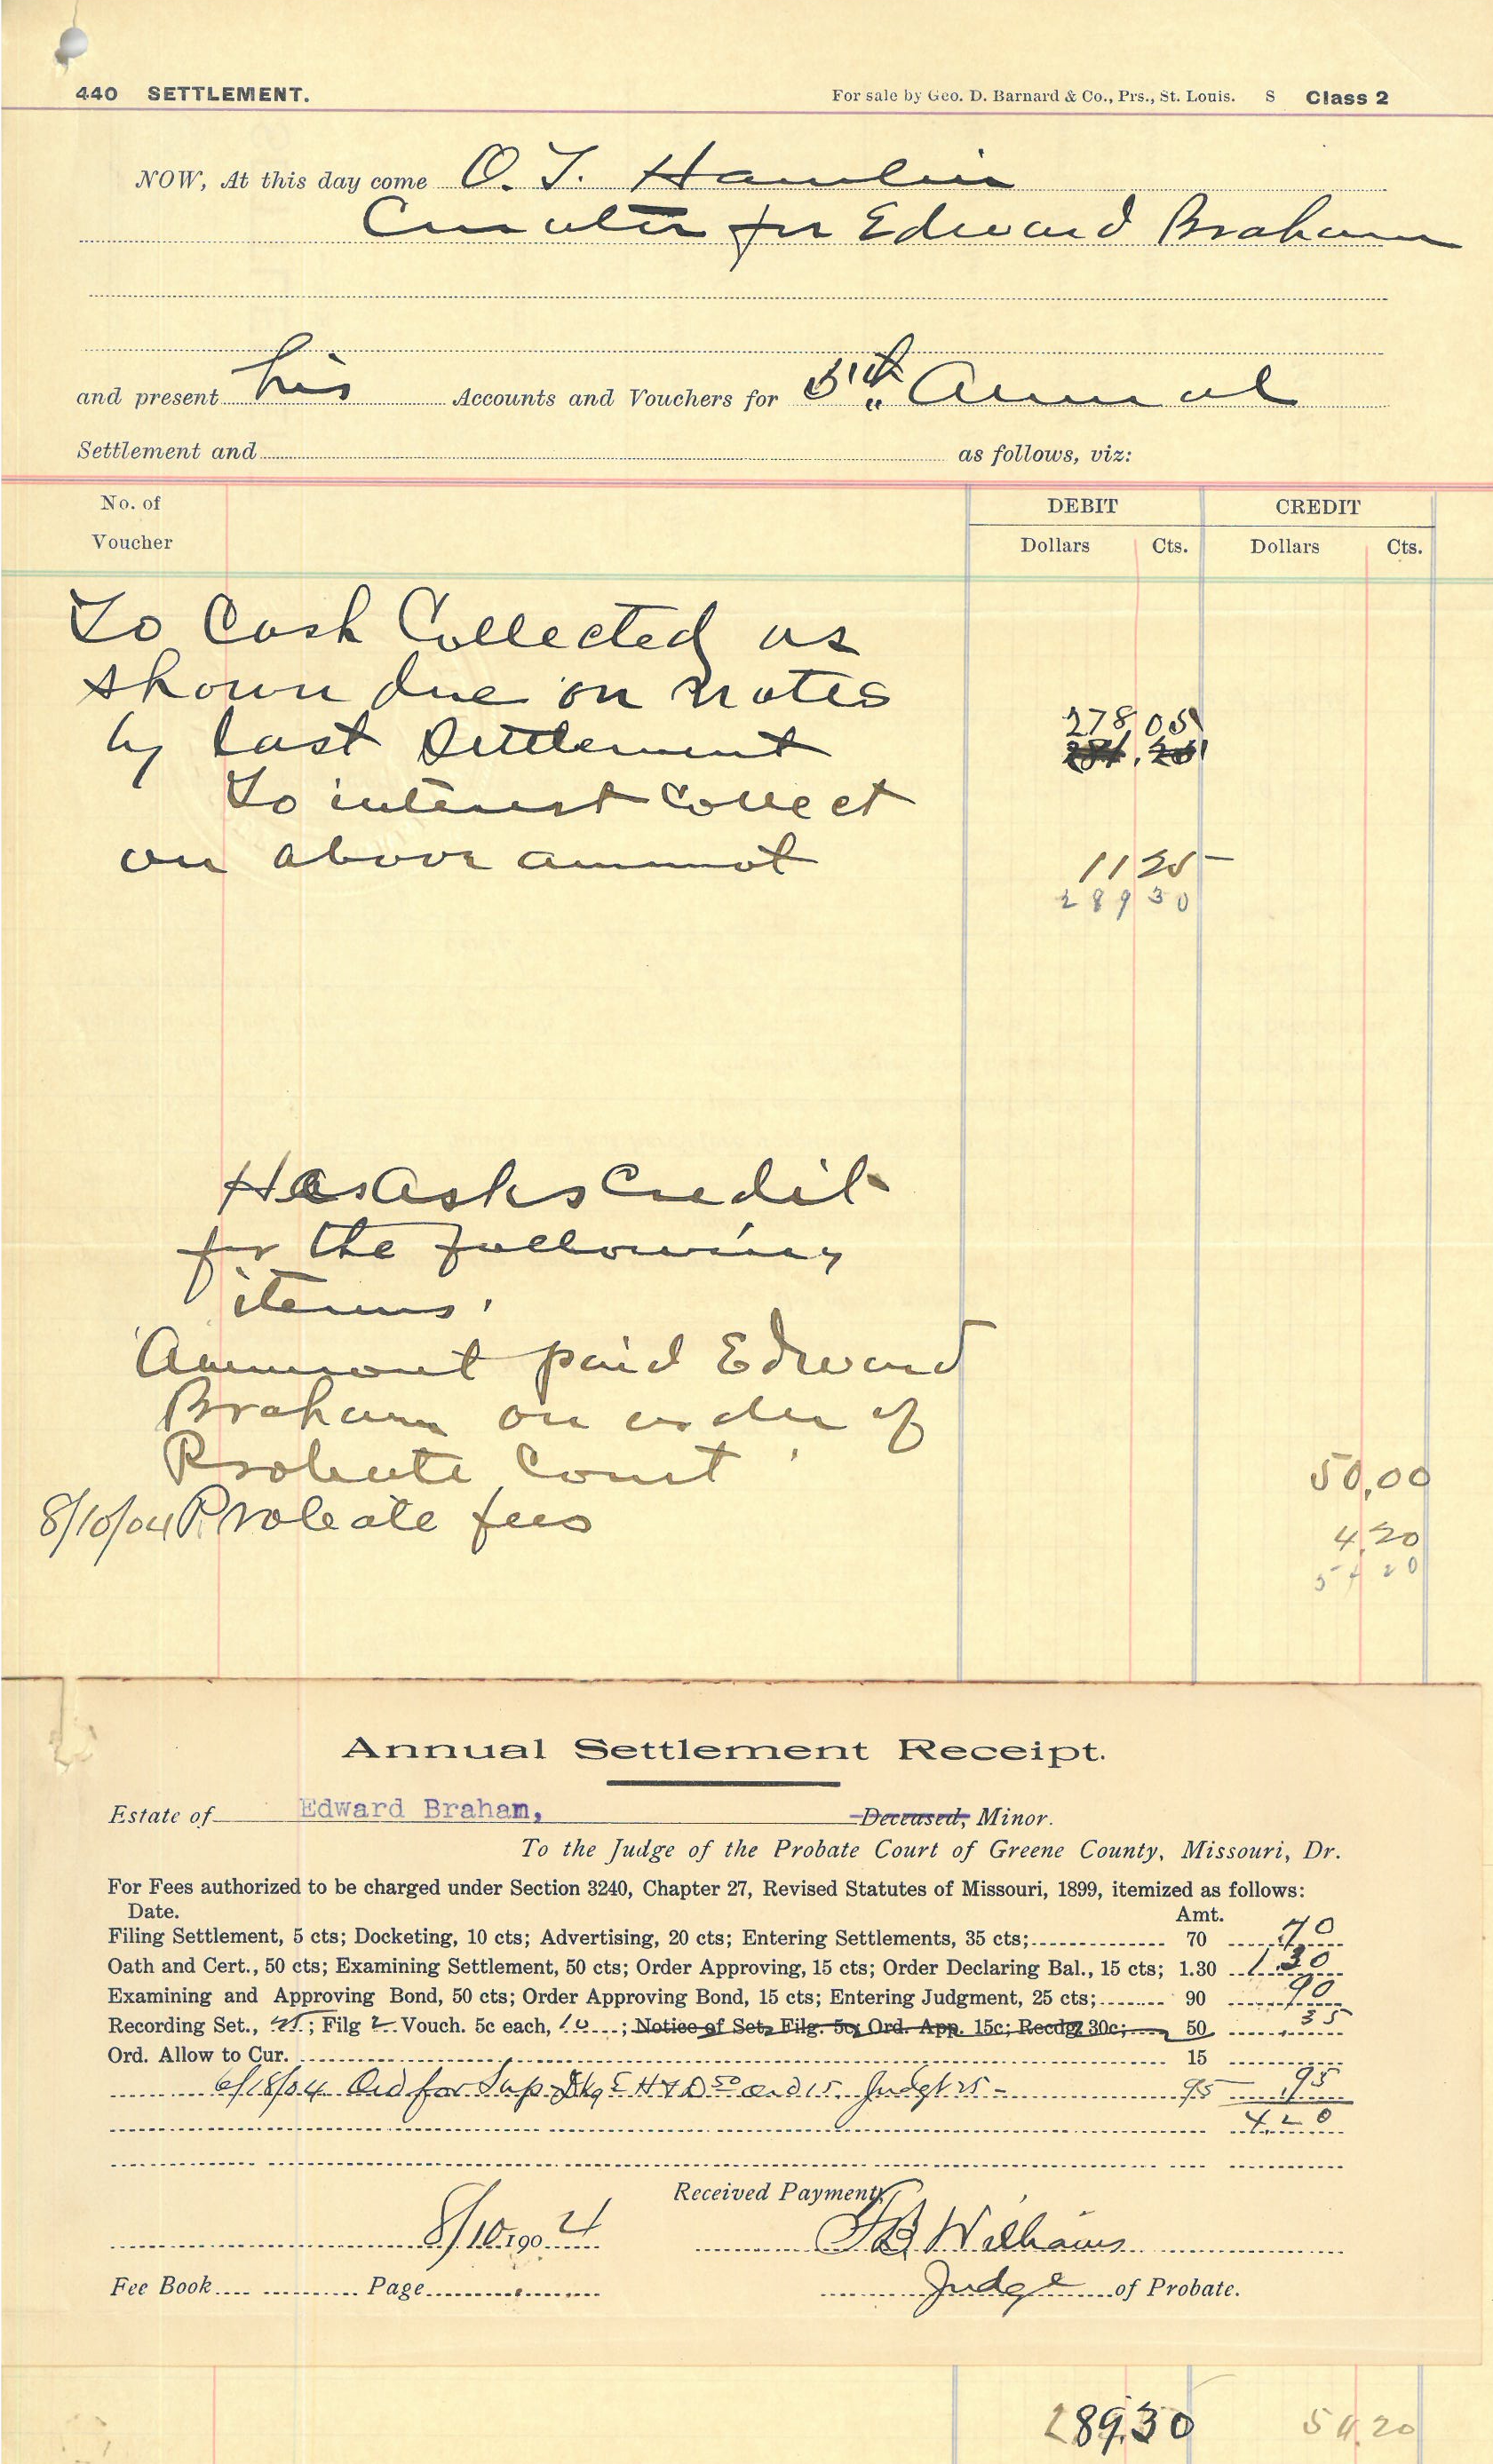 440 SETTLEMENT.
For sale by Geo. D. Barnard & Co., Prs., St. Louis. S Class 2
NOW, At this day come O. T. Hamlin
Curator for Edward Braham
and present his Accounts and Vouchers for 5th Annual
Settlement and as follows, viz:
No. of Voucher DEBIT CREDIT
Dollars Cts. Dollars Cts.
To Cash Collected as
shown due on notes
by last Settlement 278 05
To interest Collect
on above ammot 11 25
289 30
He Asks Credit
for the following
items.
Ammount paid Edward
Braham on order of
Probate Court 50,00
8/10/04 Probate fees 4.20
54 20
Annual Settlement Receipt.
Estate of Edward Braham, Deceased, Minor.
To the Judge of the Probate Court of Greene County, Missouri, Dr.
For Fees authorized to be charged under Section 3240, Chapter 27, Revised Statutes of Missouri, 1899, itemized as follows:
Date. Amt.
Filing Settlement, 5 cts; Docketing, 10 cts; Advertising, 20 cts; Entering Settlements, 35 cts; 70 70
Oath and Cert., 50 cts; Examining Settlement, 50 cts; Order Approving, 15 cts; Order Declaring Bal., 15 cts; 1.30 1.30
Examining and Approving Bond, 50 cts; Order Approving Bond, 15 cts; Entering Judgment, 25 cts; 90 90
Recording Set., 25; Filg 2 Vouch. 5c each, 10; Notice of Set, Filg. 5c; Ord. App. 15c; Recdg 30c; 50 35
Ord. Allow to Cur. 15
6/18/04 Ord for Sup Dkg 5 H & D 50 ord 15 Judgt 25 - 95 95
4.20
Received Payment,
8/10 1904 Williams
Fee Book Page Judge of Probate.
289.30 54.20